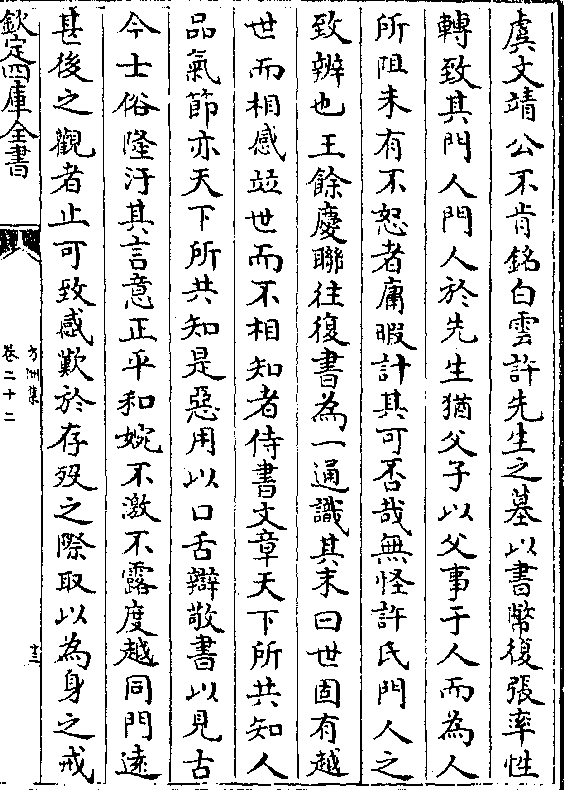 虞文靖公不肯銘白雲許先生之墓以書幣復張率性
轉致其門人門人於先生猶父子以父事于人而為人
所阻未有不恕者庸暇計其可否哉無怪許氏門人之
致辨也王餘慶聯往復書為一通識其末曰世固有越
世而相感竝世而不相知者侍書文章天下所共知人
品氣節亦天下所共知是惡用以口舌辯敬書以見古
今士俗隆汙其言意正乎和婉不激不露度越同門遠
甚後之觀者止可致感歎於存歿之際取以為身之戒
欽定四庫全書
方洲集
卷二十二
十三